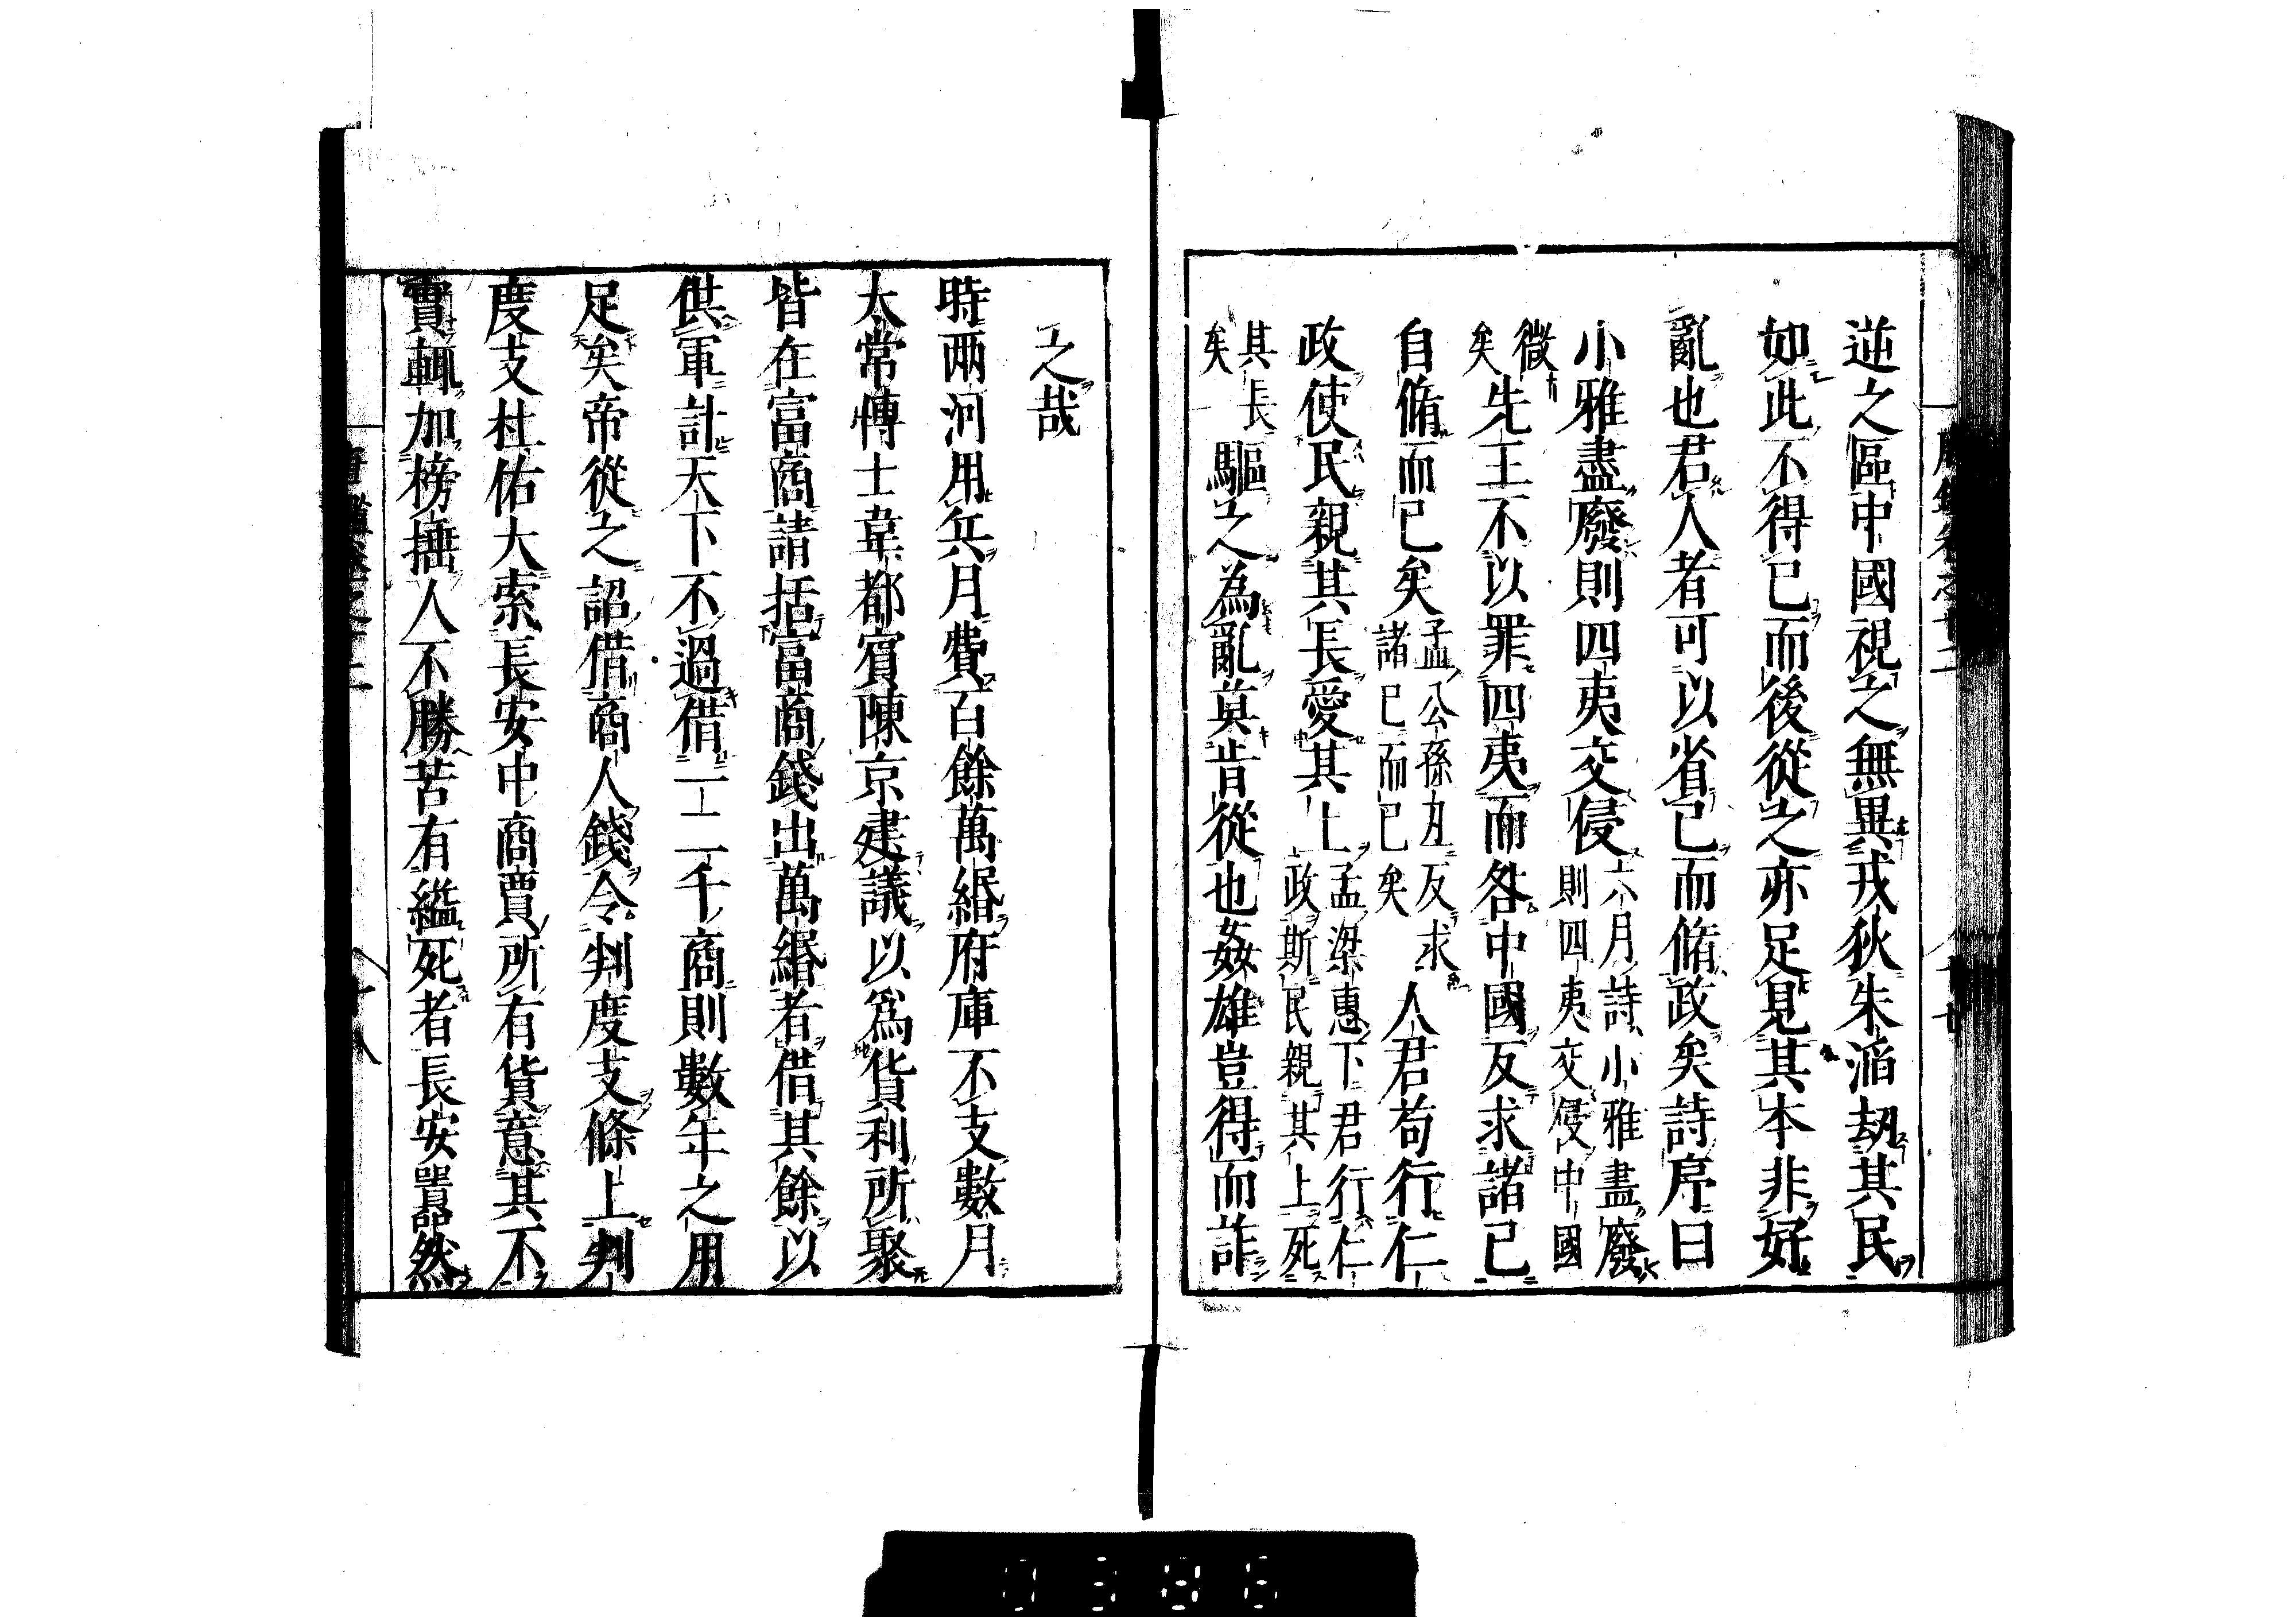 逆之區中國視之無異戎狄朱滔劫其民
如此不得已而後從之亦足見其本非好
亂也君人者可以省己而脩政矣詩序曰
小雅盡廢則四夷交侵六月詩小雅盡廢則四夷交侵中國
微矣先王不以罪四夷而咎中國反求諸己
自脩而已矣孟公孫丑反求諸己而已矣人君苟行仁
政使民親其長愛其上孟梁惠下君行仁政斯民親其上死
其長矣驅之為亂莫肯從也姦雄豈得而詐
之哉
時兩河用兵月費百餘萬緡府庫不支數月
太常博士韋都賓陳京建議以爲貨利所聚
皆在富商請括富商錢出萬緡者借其餘以
供軍計天下不過借一二千商則數年之用
足矣帝從之詔借商人錢令判度支條上判
度支杜佑大索長安中商賈所有貨意其不
實輒加榜捶人不勝苦有縊死者長安囂然
十八
0386